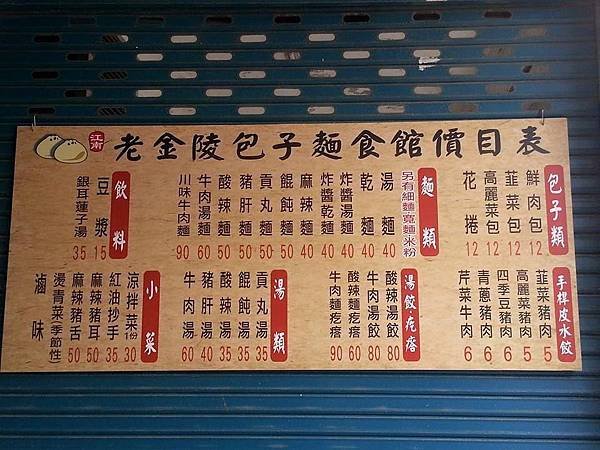 江南
老金陵包子麵食館價目表
包子類
鮮肉包 12
韮菜包 12
高麗菜包 12
花捲 12
麵類
另有細麵.寬麵.米粉
湯麵 40
乾麵 40
炸醬湯麵 40
炸醬乾麵 40
麻辣麵 40
餛飩麵 50
貢丸麵 50
豬肝麵 50
酸辣麵 50
牛肉湯麵 60
川味牛肉麵 90
飲料
豆漿 15
銀耳蓮子湯 35
手桿皮水餃
韮菜豬肉 5
高麗菜豬肉 5
四季豆豬肉 6
青蔥豬肉 6
芹菜牛肉 6
湯餃.疙瘩
酸辣湯餃 80
牛肉湯餃 80
酸辣麵疙瘩 60
牛肉麵疙瘩 90
湯類
貢丸湯 35
餛飩湯 35
酸辣湯 35
豬肝湯 40
牛肉湯 60
小菜
涼拌菜1份 30
紅油抄手 50
麻辣豬耳 50
麻辣豬舌 50
燙青菜(季節性)
滷味